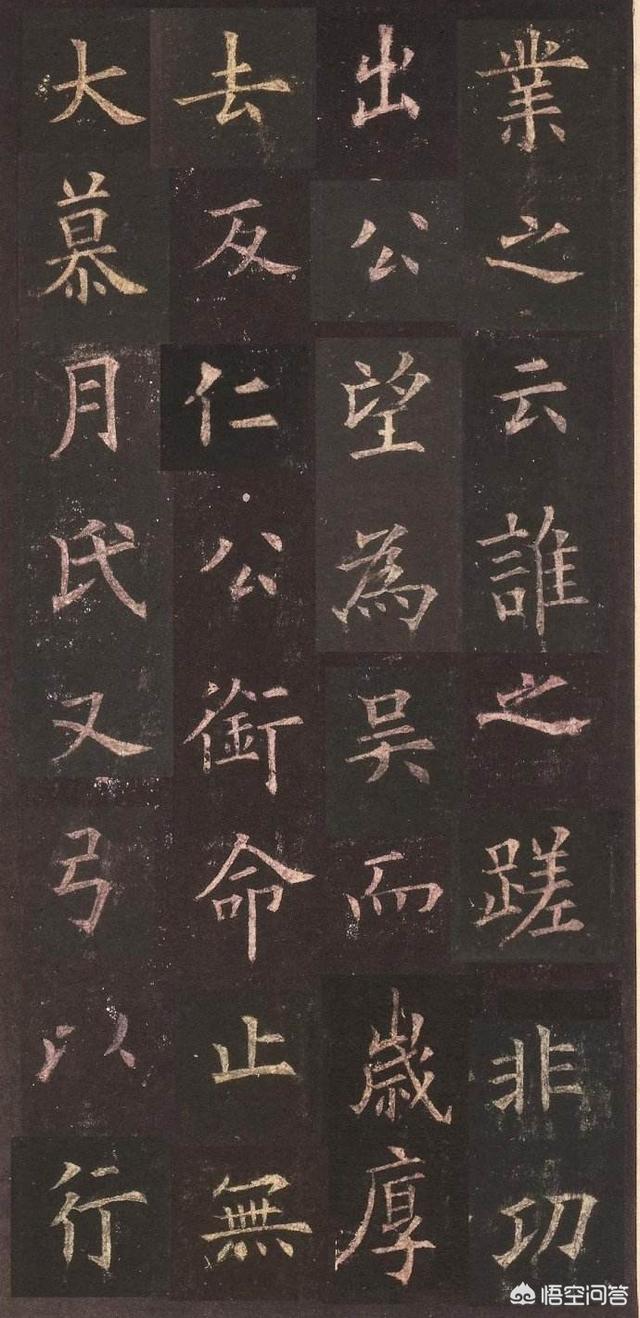 業之云誰之蹉非功
出公望為吴而歲厚
去反仁公銜命止無
大慕月氏又弓以行
悟空问答